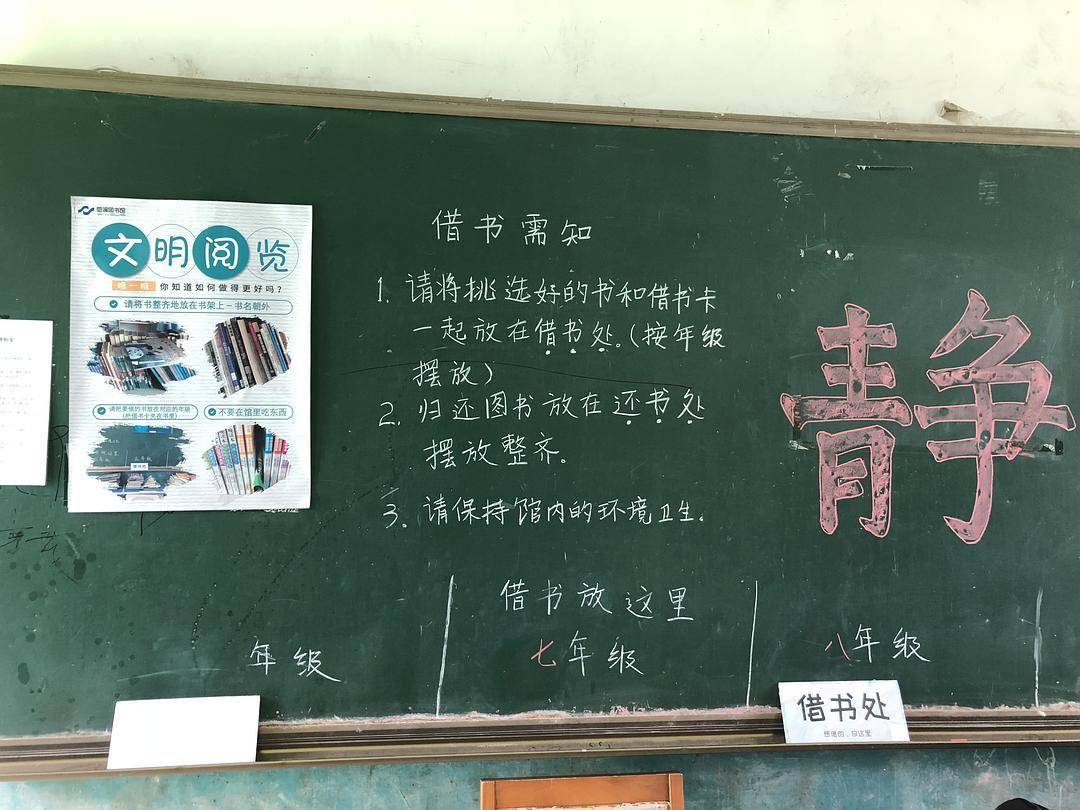 文明阅览
猜一猜 你知道如何做得更好吗?
请将书整齐地放在书架上-书名朝外
请把要借的书放在对应的年级
(把借书卡夹在书里)
不要在馆里吃东西
借书需知
1. 请将挑选好的书和借书卡
一起放在借书处。(按年级
摆放)
2. 归还图书放在还书处
摆放整齐。
3. 请保持馆内的环境卫生.
静
借书放这里
年级
七年级
八年级
借书处
想借的,放这里